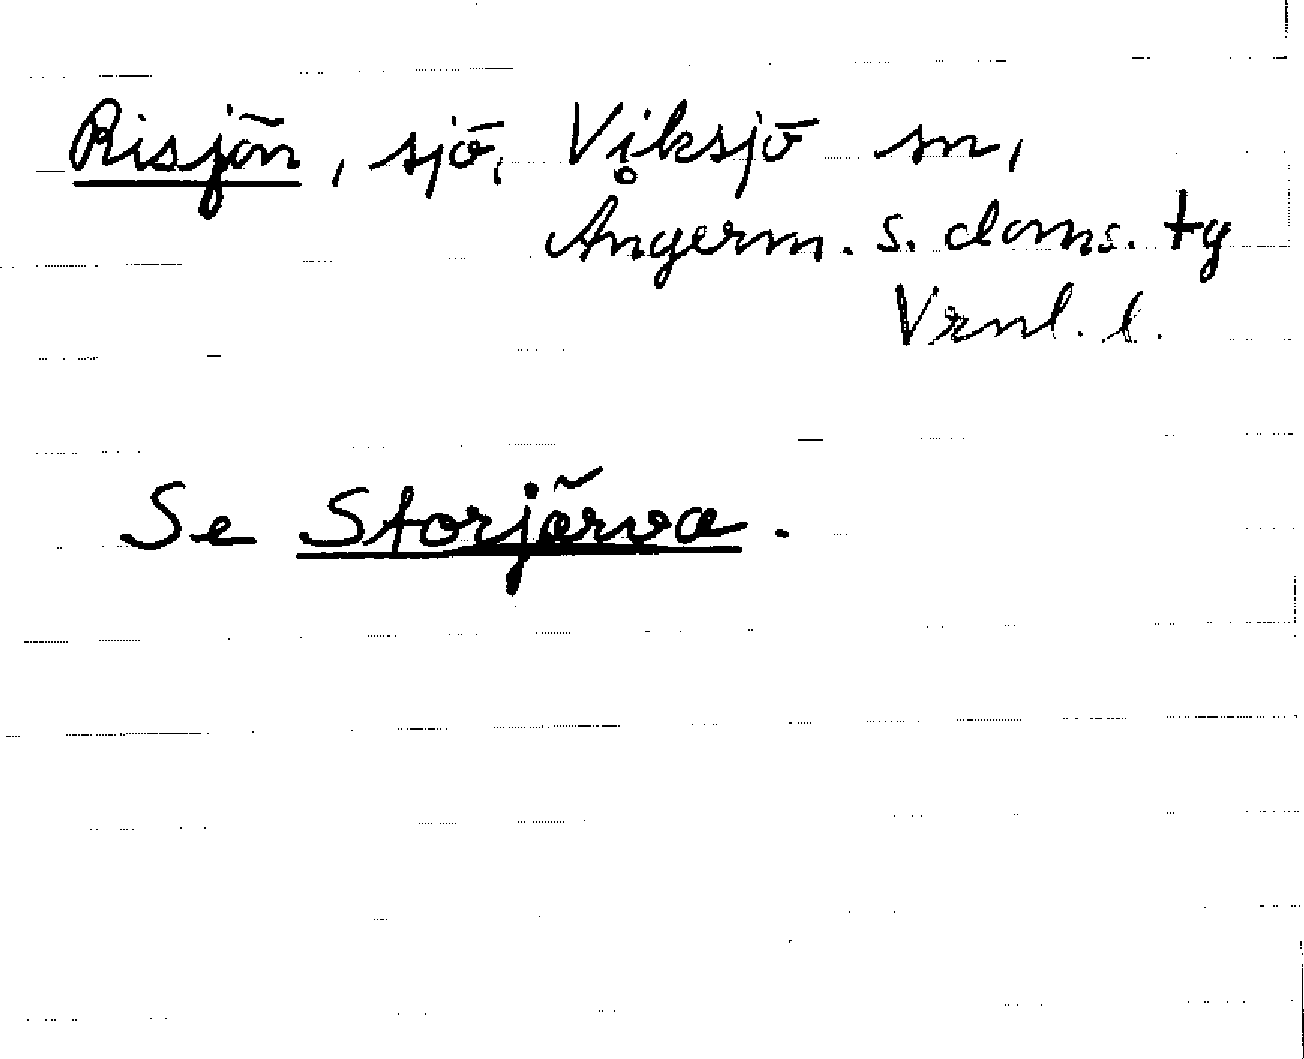 Risjön, sjö, Viksjö sn,
Ångerm. s. doms. tg
Vrnl. l.
Se Storjärva.